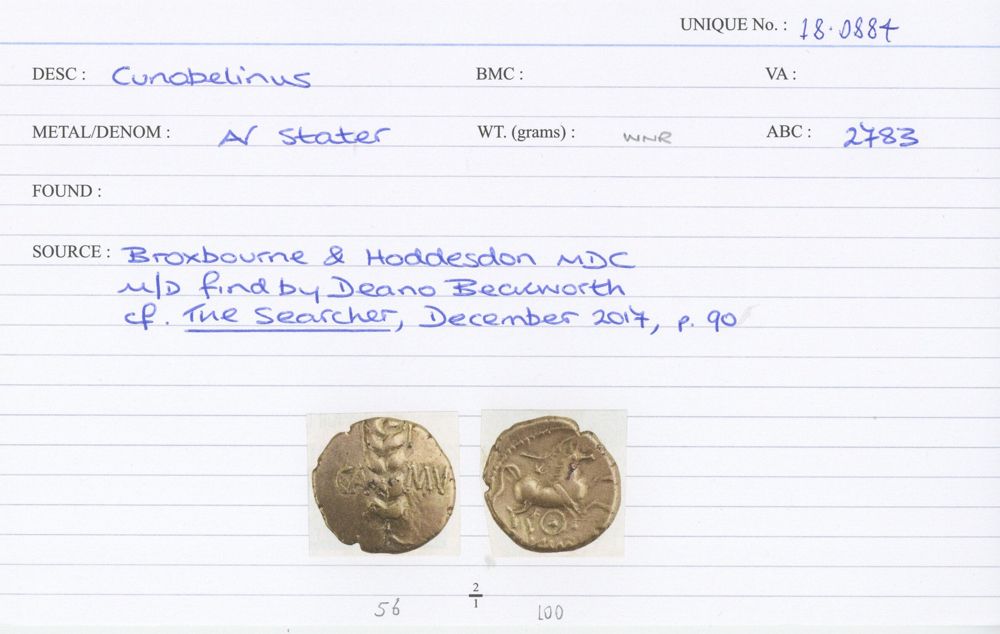 UNIQUE No. : 18.0884
DESC : Cunobelinus BMC : VA :
METAL/DENOM : AV Stater WT. (grams) : WNR ABC : 2783
FOUND :
SOURCE : Broxbourne & Hoddesdon MDC
M/D find by Deano Beckworth
cf. The Searcher, December 2017, p. 90
CA MV
2
1
56 100